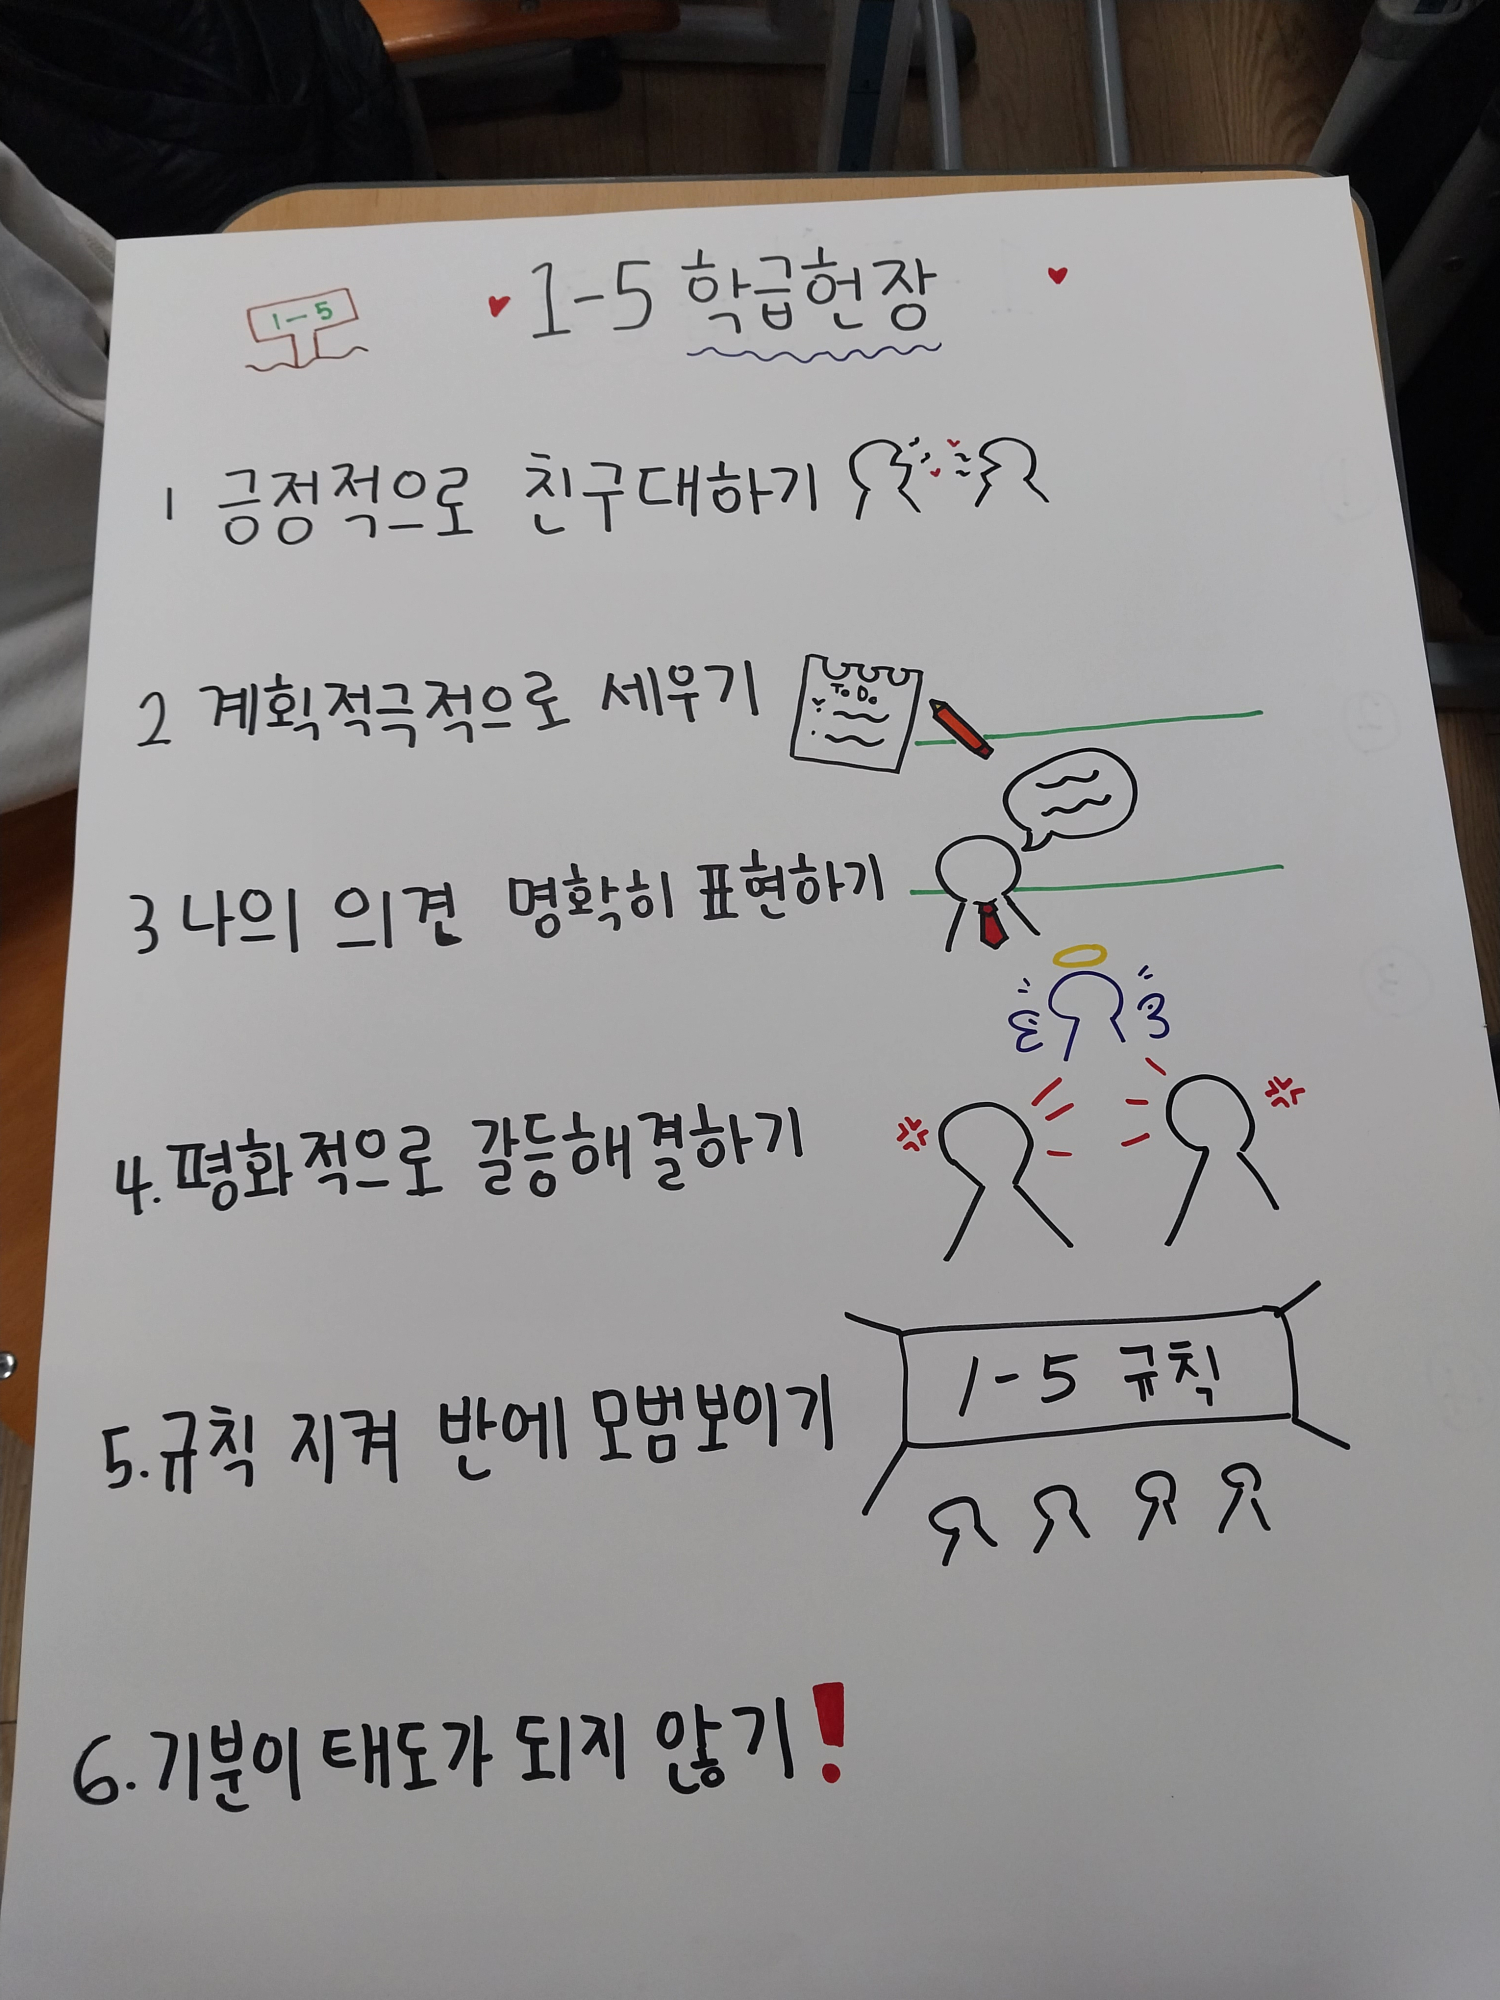 1-5
1-5 학급헌장
1 긍정적으로 친구대하기
2 계획적극적으로 세우기
To Do
3 나의 의견 명확히 표현하기
4. 평화적으로 갈등해결하기
5. 규칙 지켜 반에 모범보이기
1-5 규칙
6. 기분이 태도가 되지 않기!